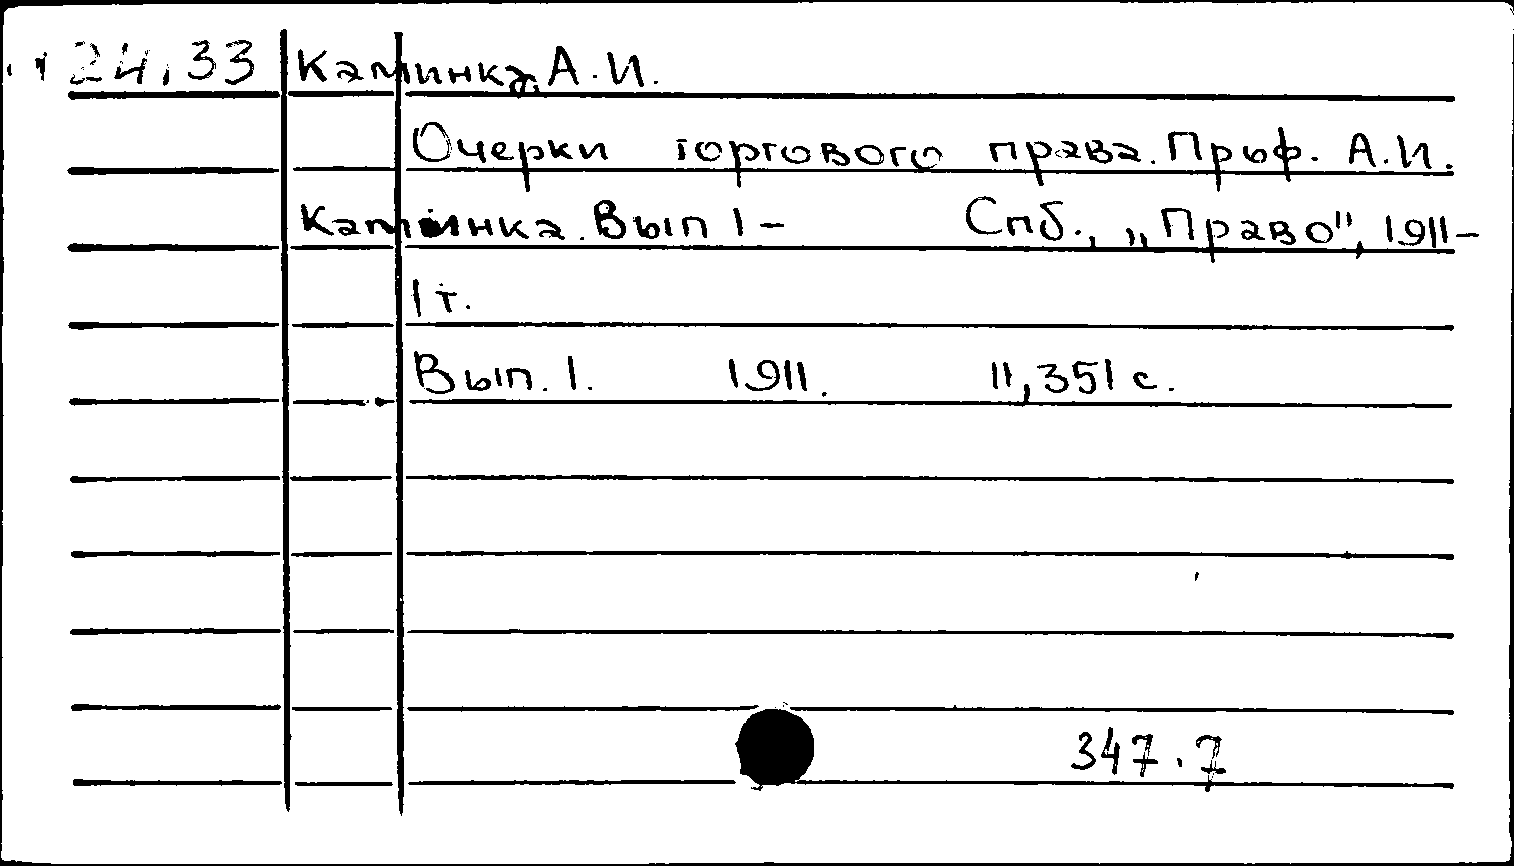 24.33 Каминка, А.И.
Очерки торгового права. Проф. А.И.
Каминка. Вып 1- Спб., „Право", 1911-
1 т.
Вып. 1. 1911. II, 351 с.
347.7